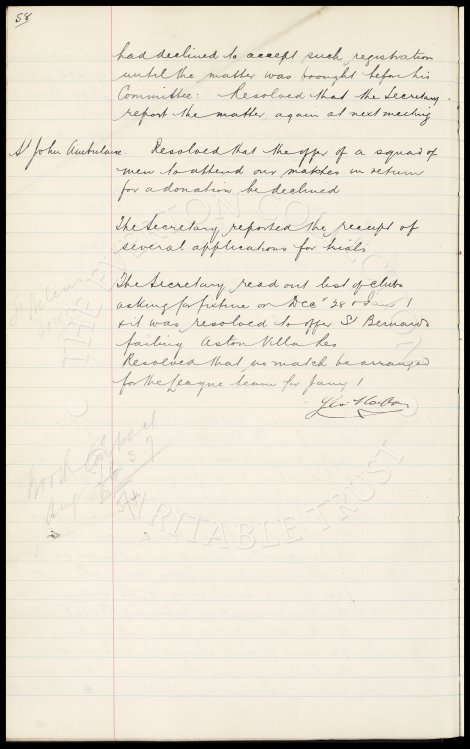 58
had declined to accept such registration
until the matter was brought before his
Committee: Resolved that the Secretary
report the matter again at next meeting
St John Ambulance. Resolved that the offer of a squad of
men to attend our matches in return
for a donation be declined
The Secretary reported the receipt of
several applications for trials
The Secretary read out list of clubs
asking for fixture on Dec 28 & Jan 1
& it was resolved to offer St Bernards
failing Aston Villa
Resolved that no match be arranged
for the League team for Jany 1
Geo Mahon
Aug
THE EVERTON COLLECTION
CHARITABLE TRUST